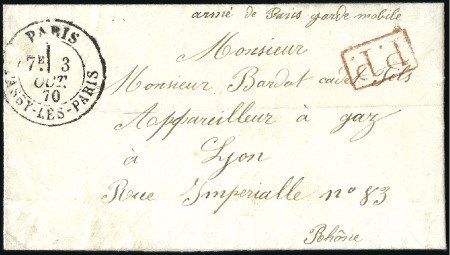 armé de Paris garde mobile
PARIS
7E 3
OCT.
70
PASSY-LES-PARIS
P.P.
Monsieur
Monsieur Bardot cadet fils
Appareilleur à gaz
à
Lyon
Rue Imperialle n° 83
Rhône